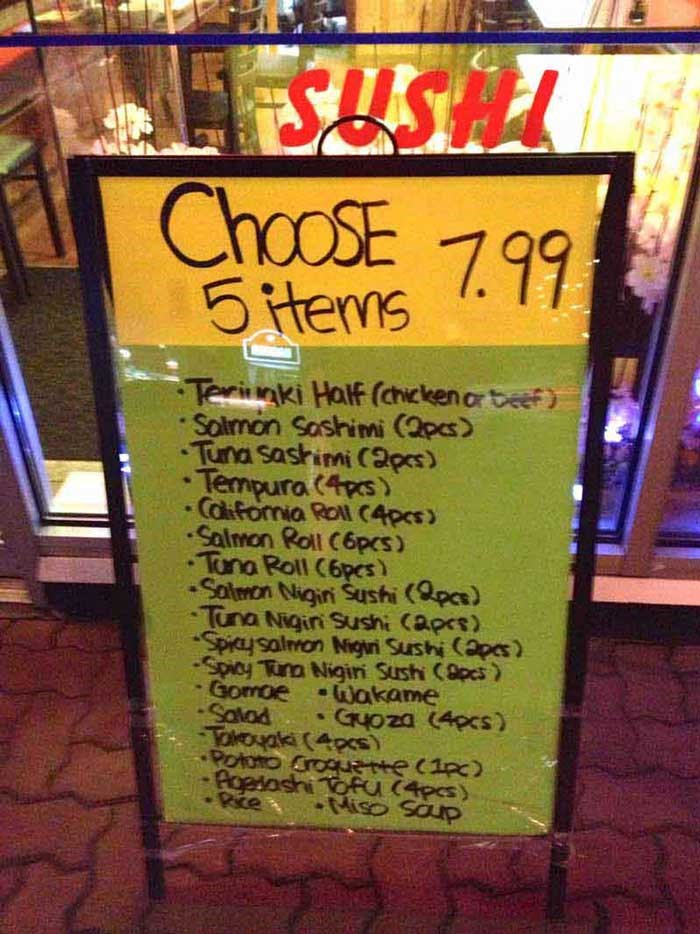 SUSHI
Choose 7.99
5 items
· Teriyaki Half (chicken or beef)
· Salmon Sashimi (2pcs)
· Tuna Sashimi (2pcs)
· Tempura (4pcs)
· California Roll (4pcs)
· Salmon Roll (6pcs)
· Tuna Roll (6pcs)
· Salmon Nigiri Sushi (2pcs)
· Tuna Nigiri Sushi (2pcs)
· Spicy salmon Nigiri Sushi (2pcs)
· Spicy Tuna Nigiri Sushi (2pcs)
· Gomae · Wakame
· Salad · Gyoza (4pcs)
· Takoyaki (4pcs)
· Potato Croquette (1pc)
· Agedashi Tofu (4pcs)
· Rice · Miso Soup